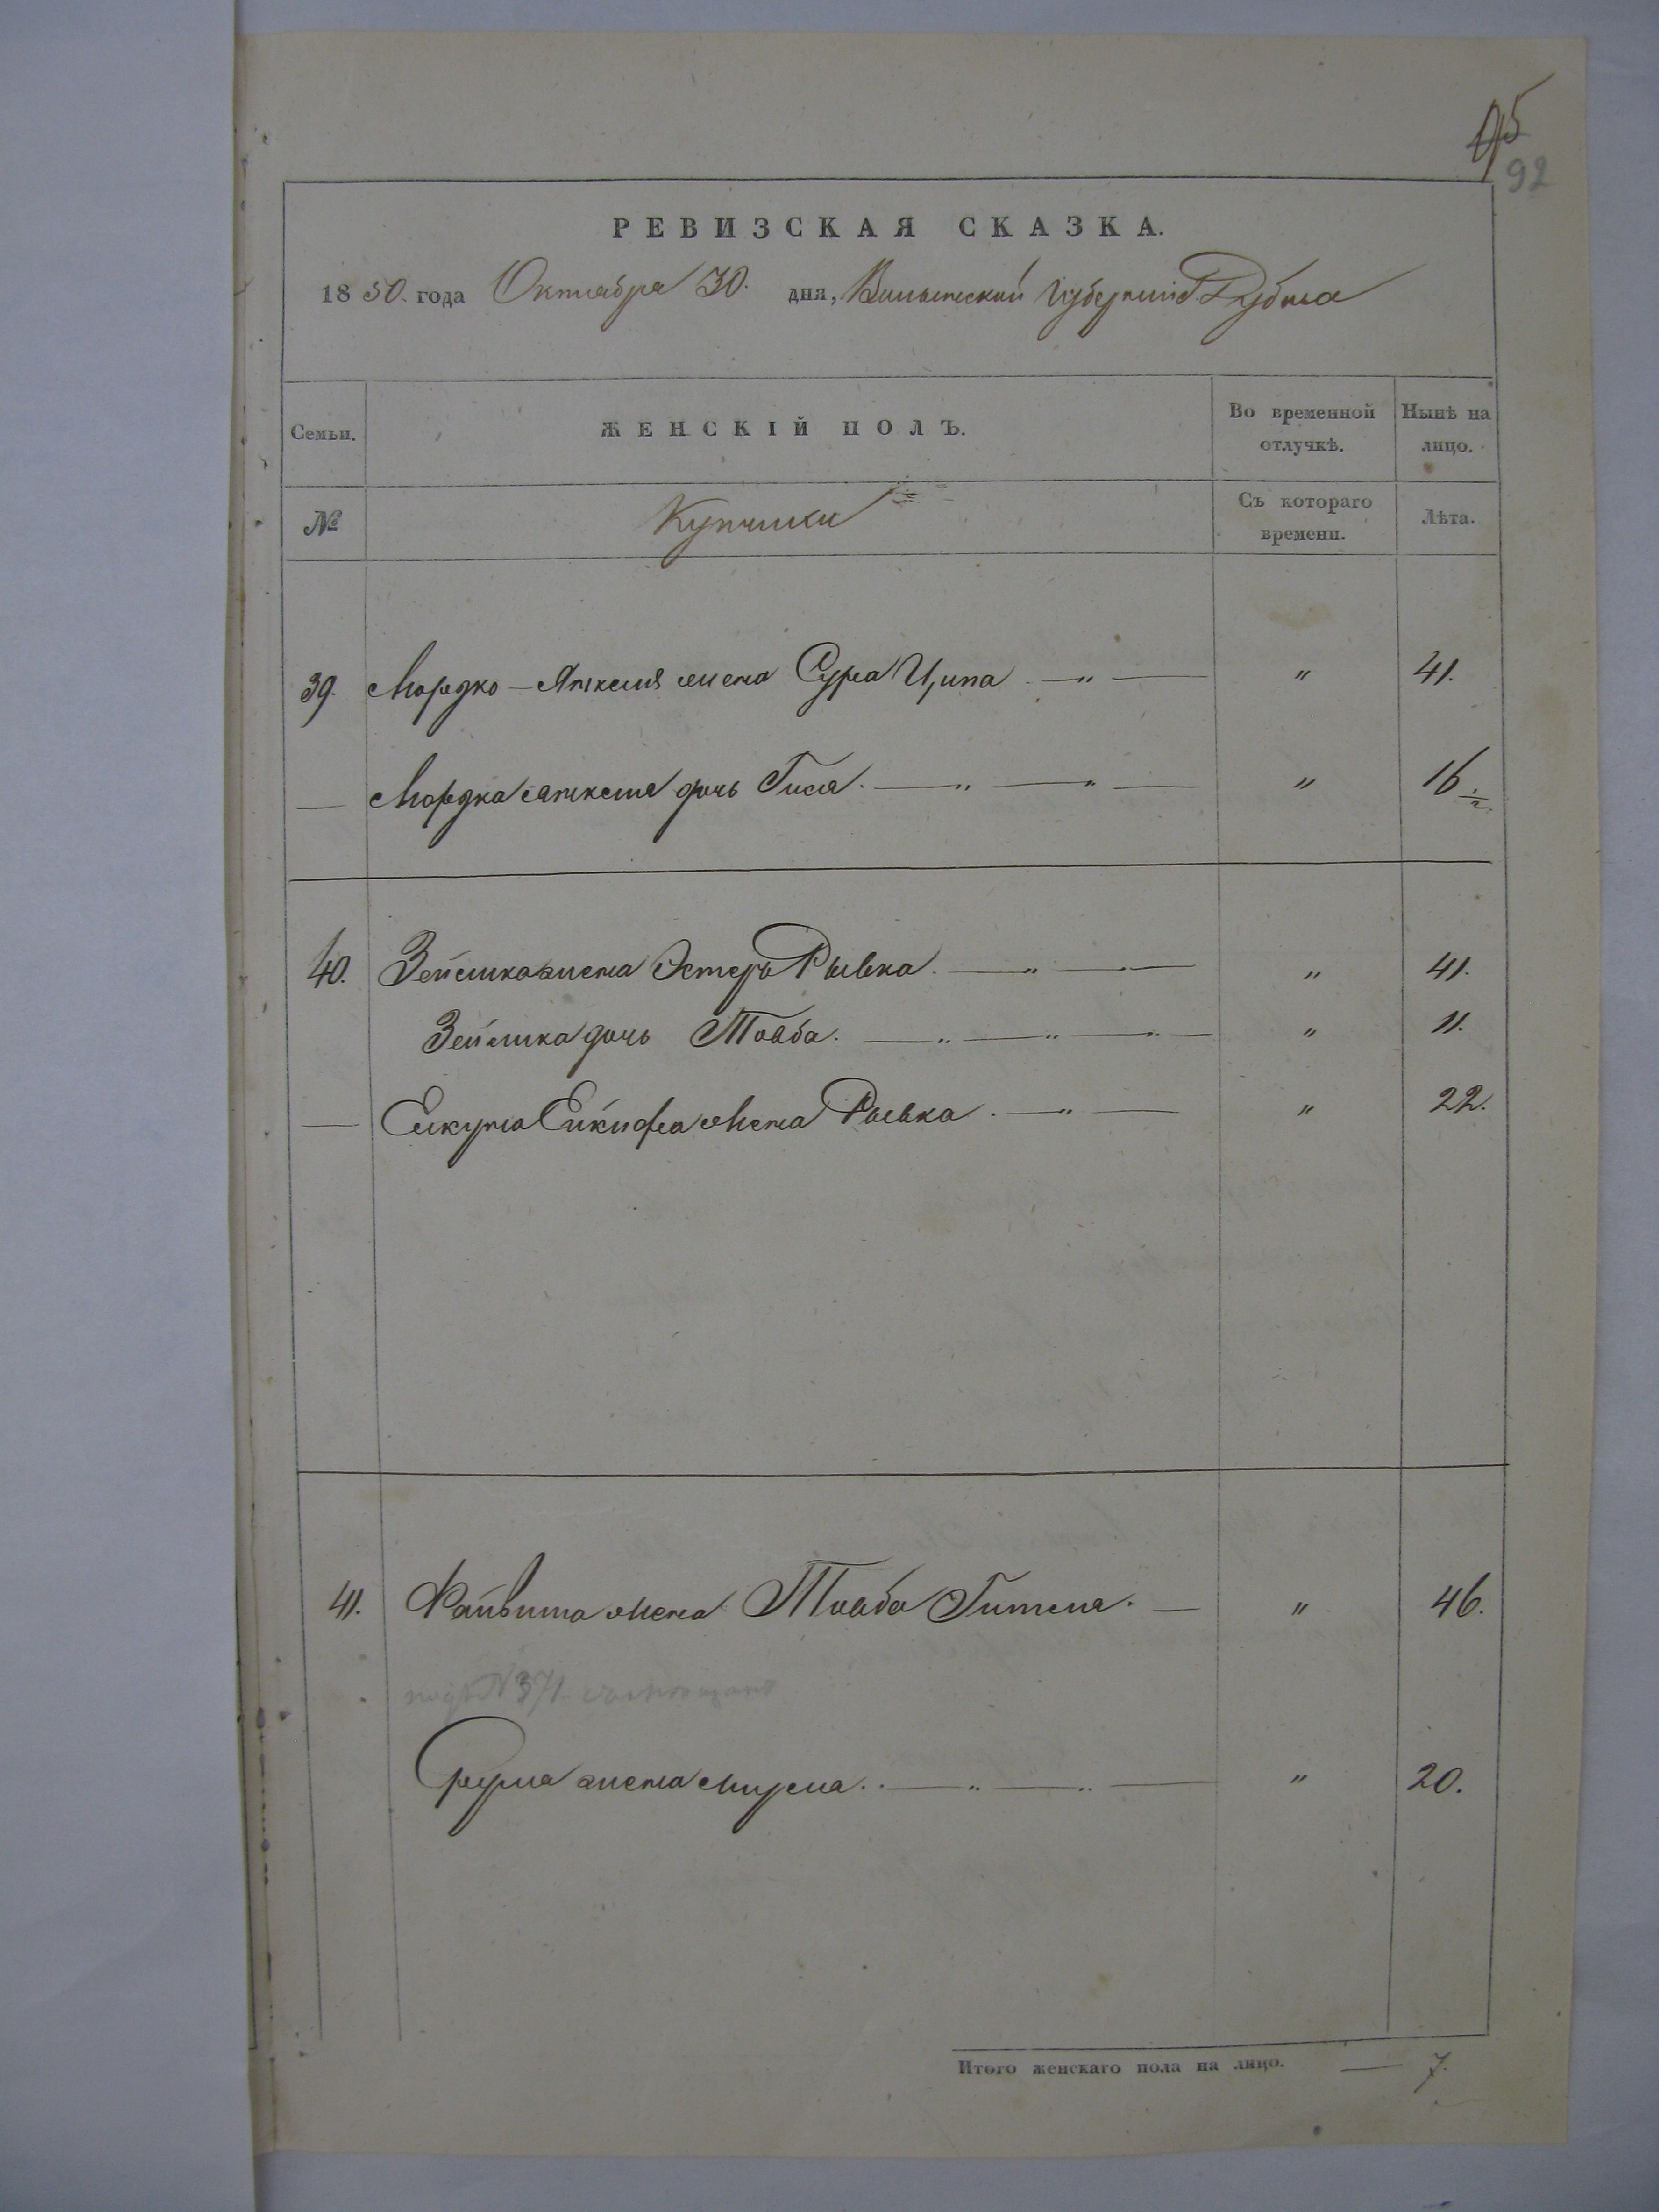 95
92
РЕВИЗСКАЯ СКАЗКА.
1850. года Октября 30. дня, Волынской Губернии Г. Дубна
Семьи. ЖЕНСКІЙ ПОЛЪ. Во временной отлучкѣ. Нынѣ на лицо.
№ Купчики Съ котораго времени. Лѣта.
39. Мордко-Анкеля жена Сура Ципа — " — " 41.
— Мордка Анкеля дочь Гися. — " — " — " 16 1/2.
40. Зейлика жена Эстеръ Рывка. — " — " 41.
Зейлика дочь Тоаба. — " — " — " — " 11.
— Рывка. — " — " 22.
41. Файвиша жена Тоаба Гителя. — " 46.
подъ №371.
Срула жена Мирля. — " — " — " 20.
Итого женскаго пола на лицо. — 7.